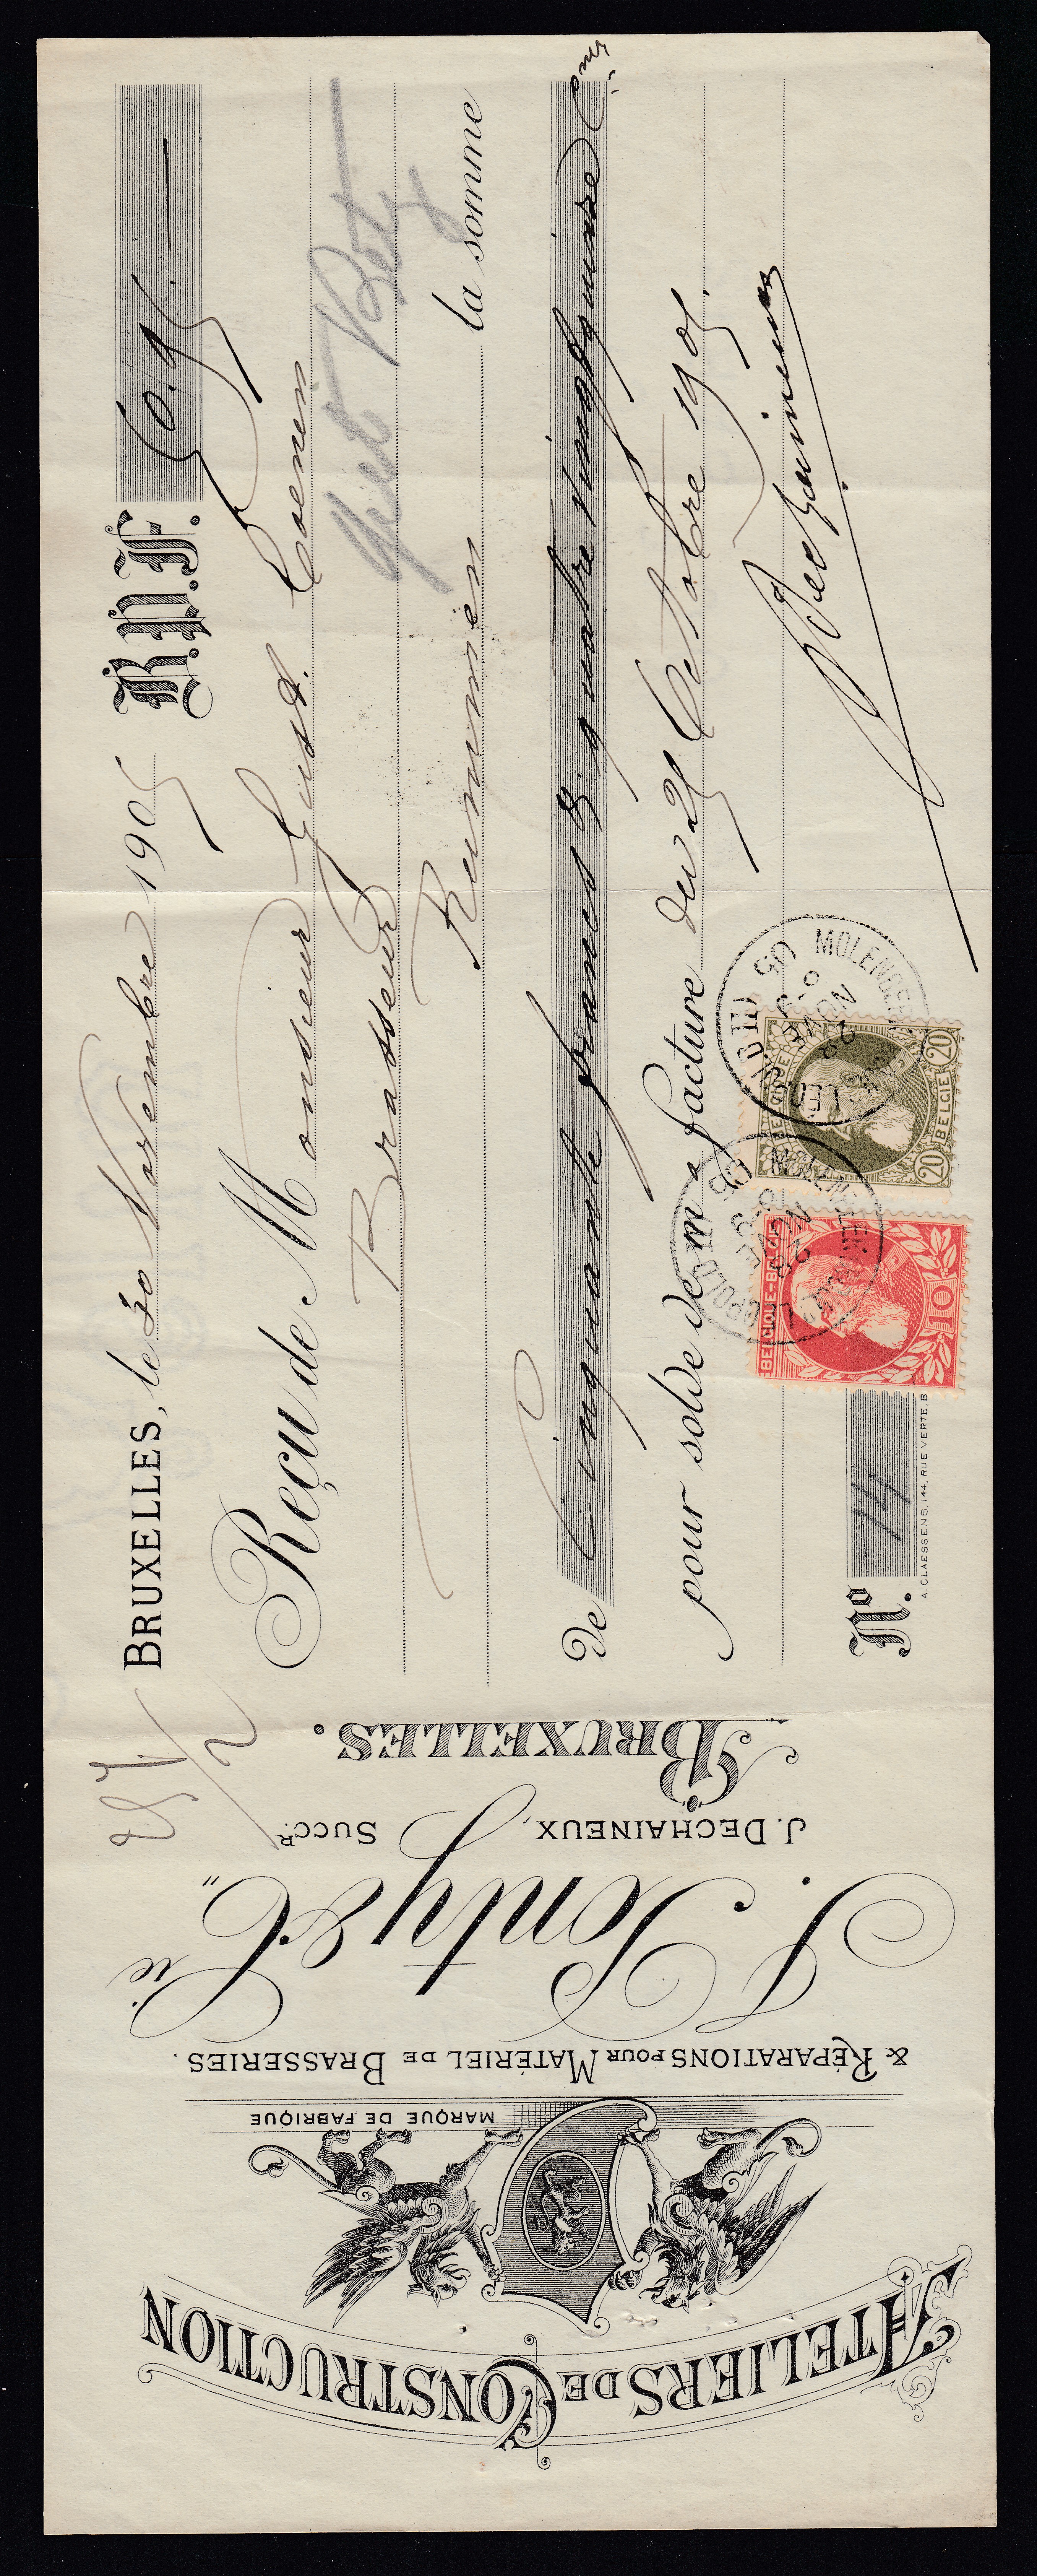 ATELIERS DE CONSTRUCTION
MARQUE DE FABRIQUE
& RÉPARATIONS POUR MATÉRIEL DE BRASSERIES.
J. DECHAINEUX, SUCC.R
BRUXELLES.
BRUXELLES, le 30 Novembre 1905 B.P.F. 50.95
Reçu de Monsieur Gust. Coenen
Brasseur
Rummen la somme
de Cinquante francs & quatre vingt quinze Cmes
pour solde de ma facture du 25 Octobre 1905.
Dechaineux
No. 14
A. CLAESSENS, 144, RUE VERTE, B
BELGIQUE-BELGIE
10
BELGIE
20 20
MOLENBEEK